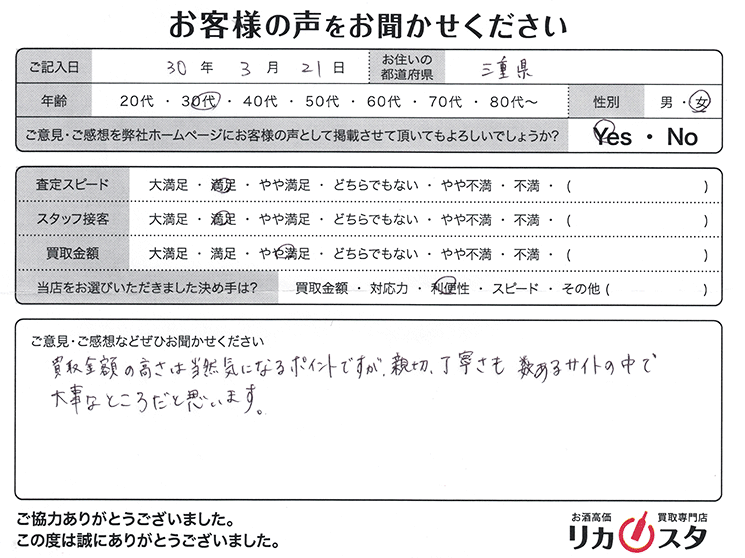 お客様の声をお聞かせください
ご記入日 30 年 3 月 21 日 お住いの都道府県 三重県
年齢 20代・30代・40代・50代・60代・70代・80代～ 性別 男・女
ご意見・ご感想を弊社ホームページにお客様の声として掲載させて頂いてもよろしいでしょうか? Yes・No
査定スピード 大満足・満足・やや満足・どちらでもない・やや不満・不満・( )
スタッフ接客 大満足・満足・やや満足・どちらでもない・やや不満・不満・( )
買取金額 大満足・満足・やや満足・どちらでもない・やや不満・不満・( )
当店をお選びいただきました決め手は? 買取金額・対応力・利便性・スピード・その他( )
ご意見・ご感想などぜひお聞かせください
買取金額の高さは当然気になるポイントですが、親切、丁寧さも 数あるサイトの中で
大事なところだと思います。
ご協力ありがとうございました。
この度は誠にありがとうございました。
お酒高価 買取専門店
リカスタ